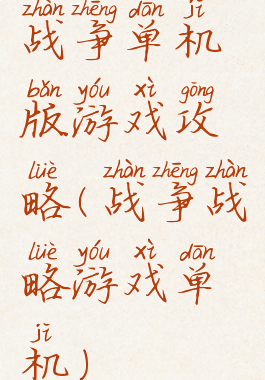 zhàn zhēng dān jī
战争单机
bǎn yóu xì gōng
版游戏攻
lüè zhàn zhēng zhàn
略(战争战
lüè yóu xì dān
略游戏单
jī
机)